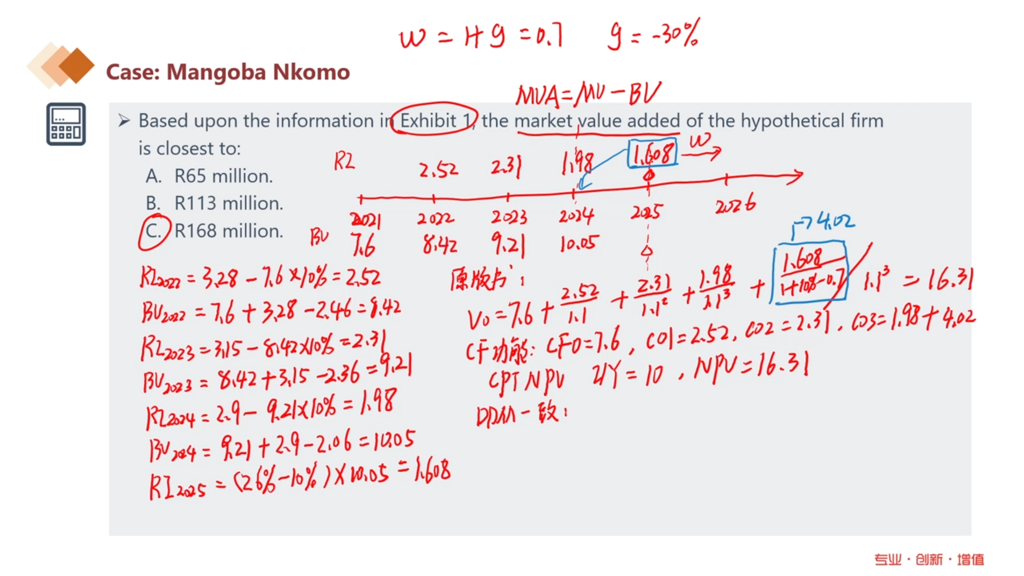 W = 1+g = 0.7 g = -30%
Case: Mangoba Nkomo
MVA = MV - BV
➢ Based upon the information in Exhibit 1, the market value added of the hypothetical firm
is closest to:
RI 2.52 2.31 1.98 1.608 W
A. R65 million.
B. R113 million.
2021 2022 2023 2024 2025 2026
C. R168 million.
BV 7.6 8.42 9.21 10.05
→4.02
RI2022 = 3.28 - 7.6×10% = 2.52
BV2022 = 7.6 + 3.28 - 2.46 = 8.42
RI2023 = 3.15 - 8.42×10% = 2.31
BV2023 = 8.42 + 3.15 - 2.36 = 9.21
RI2024 = 2.9 - 9.21×10% = 1.98
BV2024 = 9.21 + 2.9 - 2.06 = 10.05
RI2025 = (26% - 10%) × 10.05 = 1.608
原版书:
V0 = 7.6 + 2.52/1.1 + 2.31/1.1² + 1.98/1.1³ + 1.608/1+10%-0.7 / 1.1³ = 16.31
CF功能: CF0 = 7.6, C01 = 2.52, C02 = 2.31, C03 = 1.98 + 4.02
CPT NPV I/Y = 10, NPV = 16.31
DDM一致:
专业·创新·增值